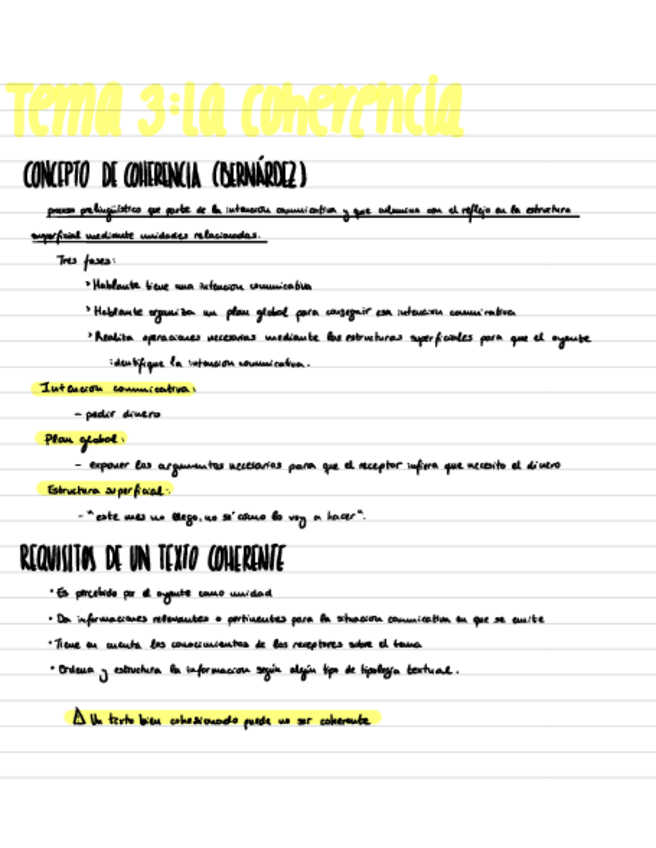 Tema 3: La coherencia
CONCEPTO DE COHERENCIA (BERNÁRDEZ)
proceso prelingüístico que parte de la intención comunicativa y que culmina con el reflejo en la estructura
superficial mediante unidades relacionadas.
Tres fases:
> Hablante tiene una intención comunicativa
> Hablante organiza un plan global para conseguir esa intención comunicativa
> Realiza operaciones necesarias mediante las estructuras superficiales para que el oyente
identifique la intención comunicativa.
Intención comunicativa:
- pedir dinero
Plan global:
- exponer los argumentos necesarios para que el receptor infiera que necesito el dinero
Estructura superficial:
- "este mes no llego, no sé cómo lo voy a hacer".
REQUISITOS DE UN TEXTO COHERENTE
· Es percibido por el oyente como unidad
· Da informaciones relevantes o pertinentes para la situación comunicativa en que se emite
· Tiene en cuenta los conocimientos de los receptores sobre el tema
· Ordena y estructura la información según algún tipo de tipología textual.
△ Un texto bien cohesionado puede no ser coherente